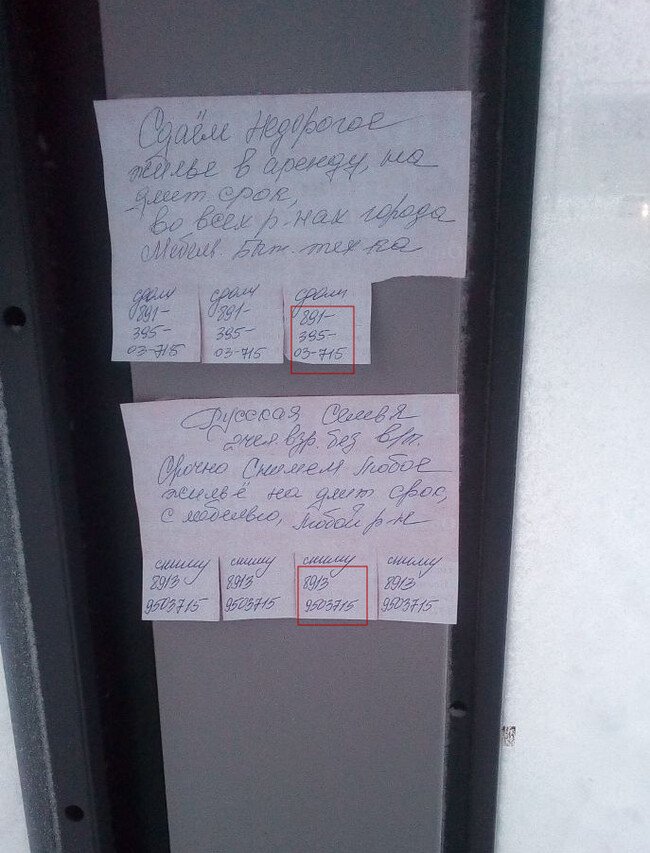 Сдаём недорогое
жилье в аренду, на
длит. срок,
во всех р-нах города
Мебель. Быт. тех-ка
сдали сдали сдали
891- 891- 891-
395- 395- 395-
03-715 03-715 03-715
Русская Семья
2 чел. взр. без в/п.
Срочно Снимем Любое
жильё на длит срок,
с мебелью, Любой р-н
сниму сниму сниму сниму
8913 8913 8913 8913
9503715 9503715 9503715 9503715